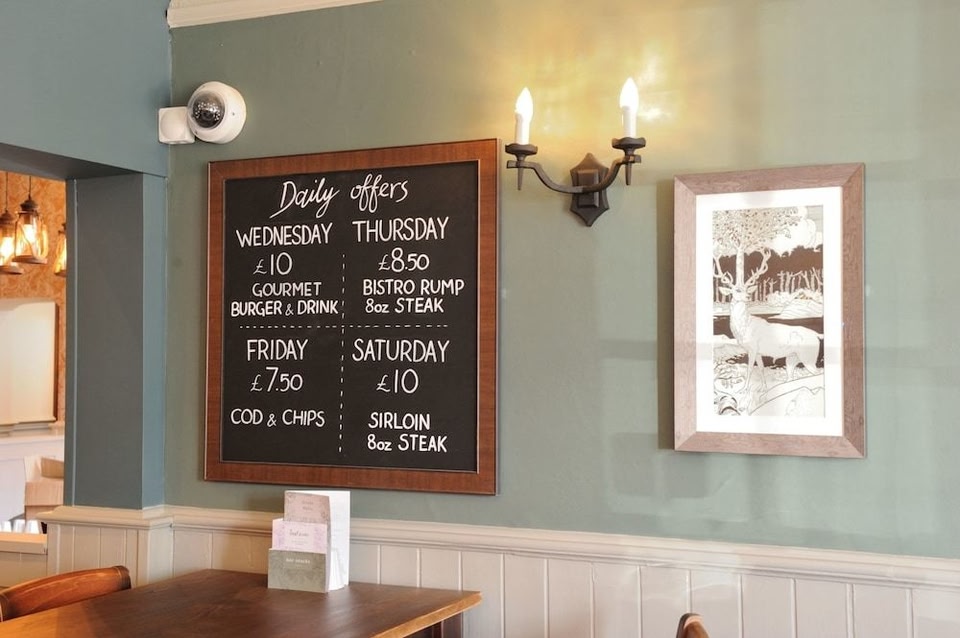 Daily offers
WEDNESDAY
£10
GOURMET
BURGER & DRINK
THURSDAY
£8.50
BISTRO RUMP
8oz STEAK
FRIDAY
£7.50
COD & CHIPS
SATURDAY
£10
SIRLOIN
8oz STEAK